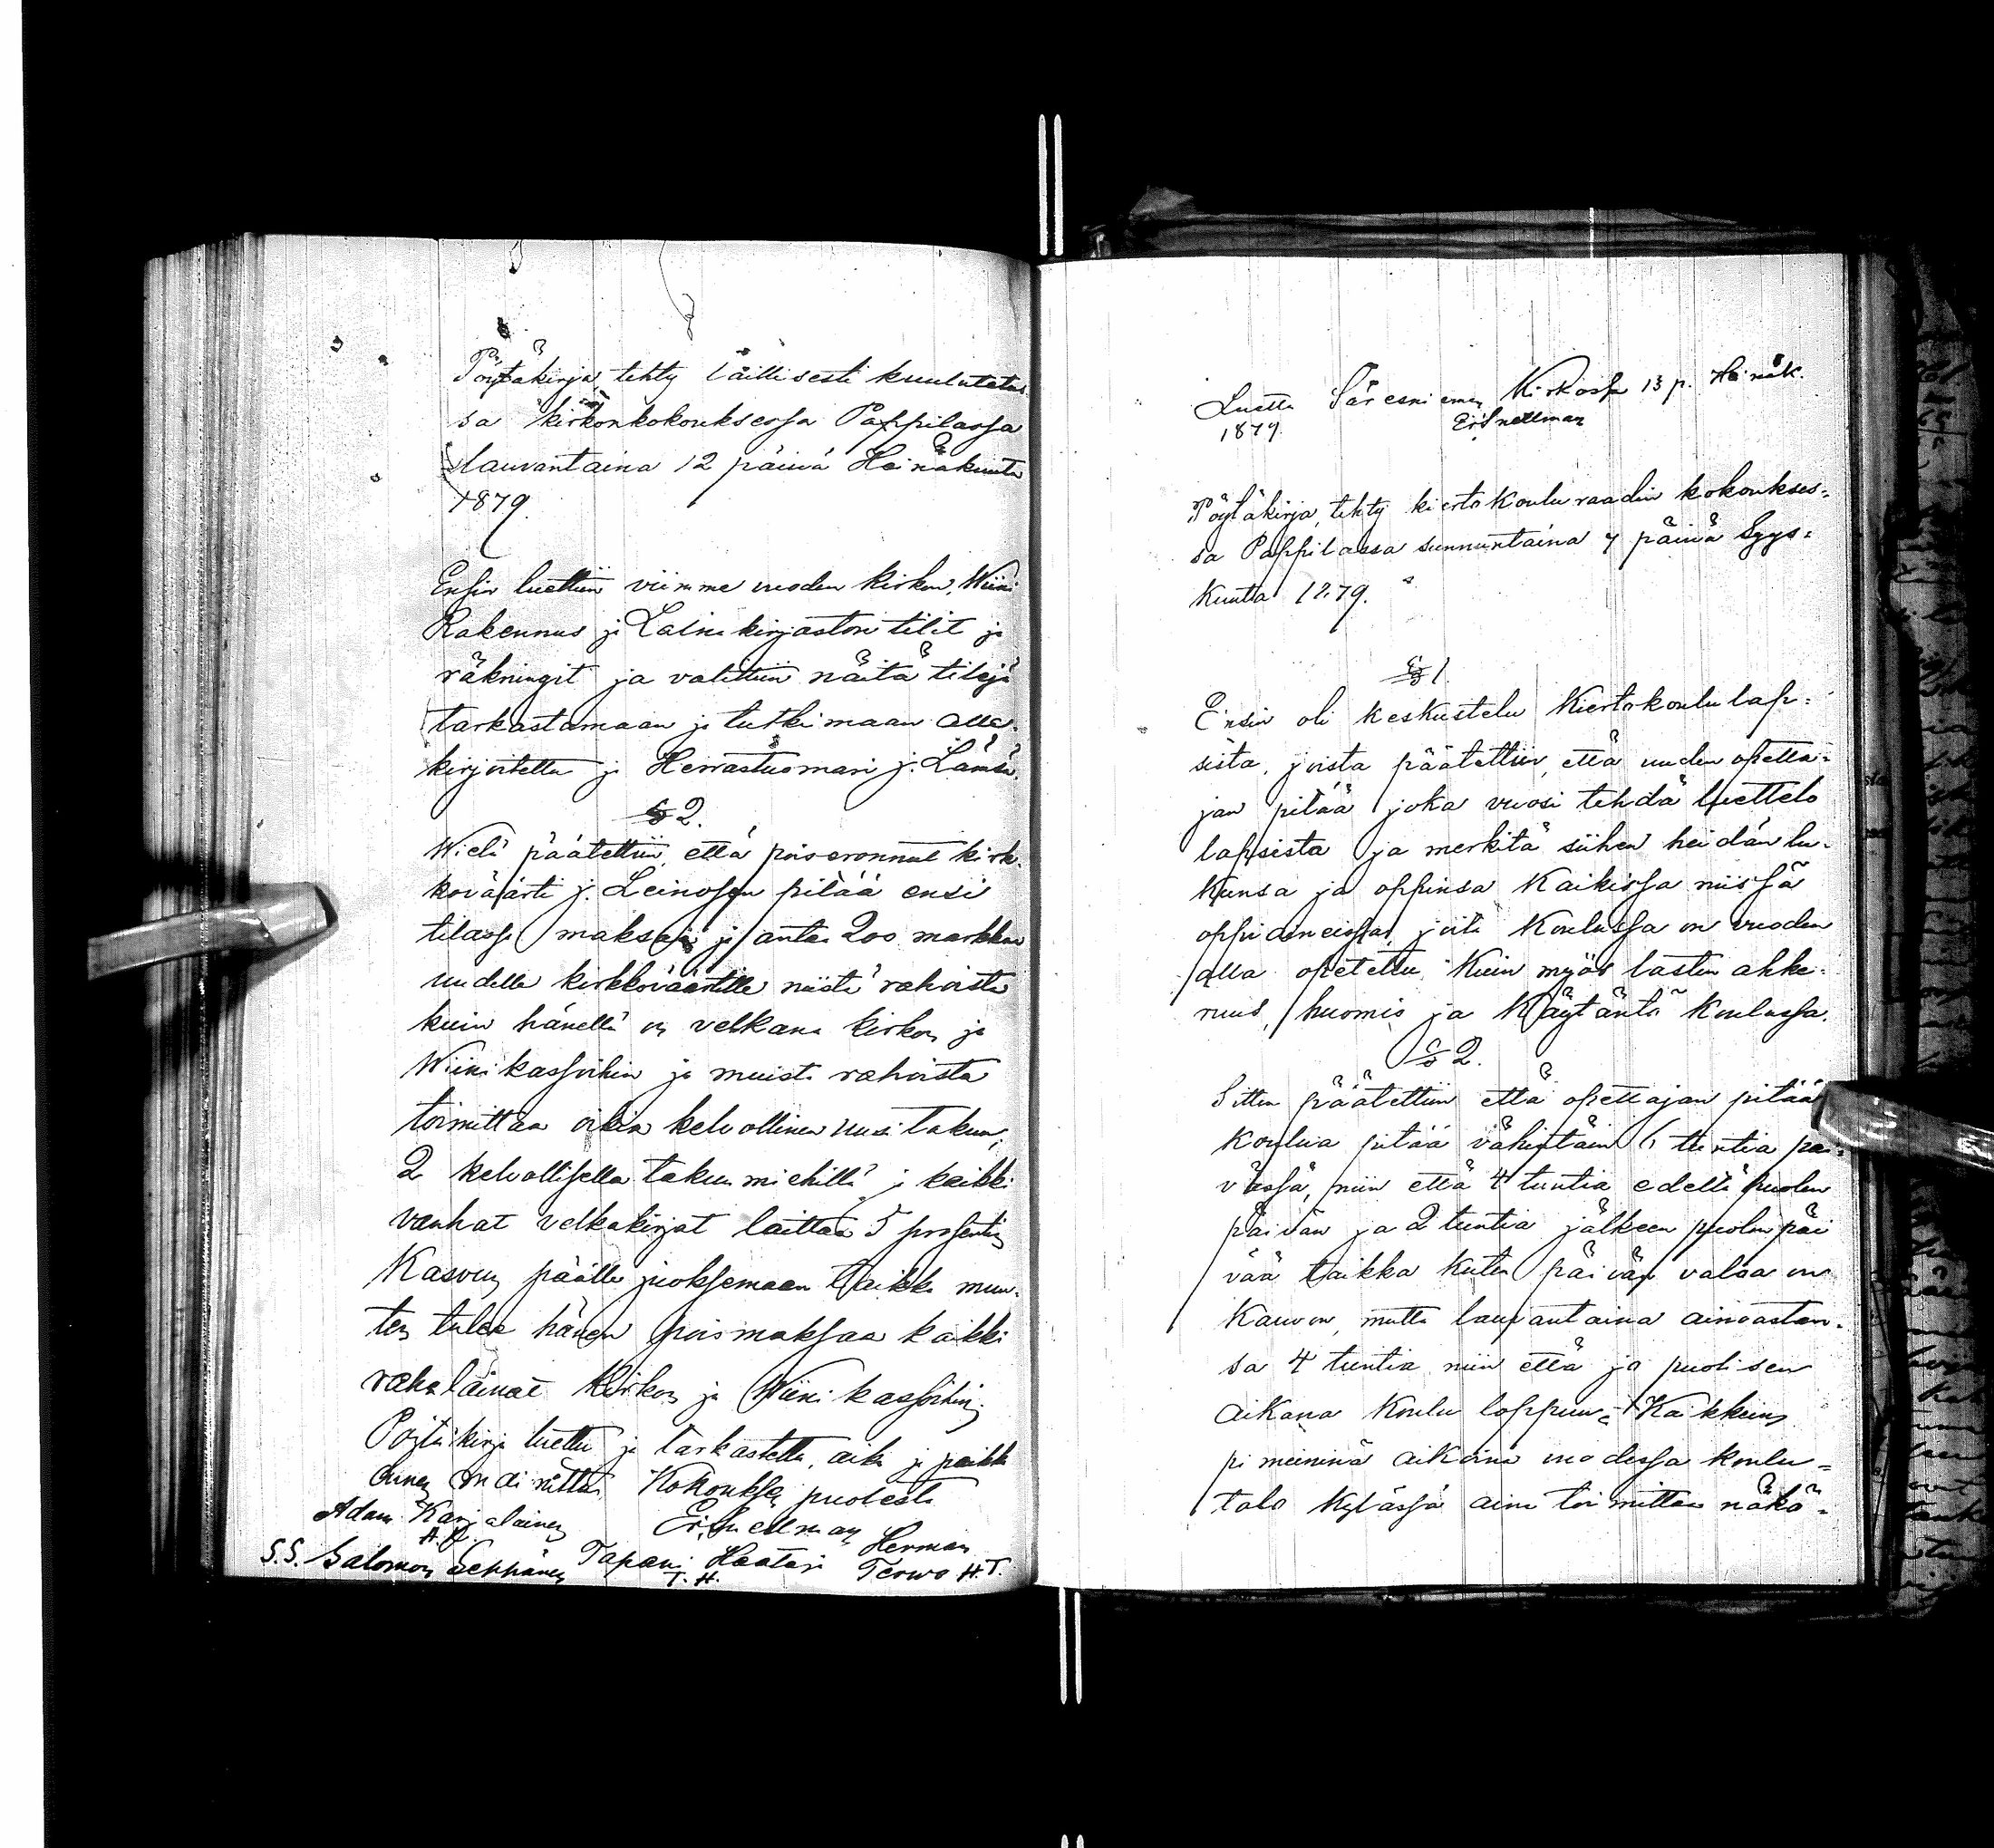 Pöytäkirja, tehty laillisesti kuulutetus
sa kirkonkokouksessa Pappilassa
lauvantaina 12 päivä Heinäkuuta
1879.
Ensin luettiin viimme vuoden kirkon, Wiini
Rakennus ja Lainakirjaston tilit ja
räkningit ja valittiin näitä tilejä
tarkastamaan ja tutkimaan alla-
kirjoitettu ja Herrastuomari J. Lämsä.
§ 2.
Wielä päätettiin, että poiseronnut kirk-
koväärti J. Leinosen pitää ensi
tilassa maksaa ja antaa 200 markkaa
uudelle kirkkoväärtille niistä rahoista
kuin hänellä on velkana kirkon ja
Wiinikassoihin ja muista rahoista
toimittaa oikia kelvollinen uusi takuu,
2 kelvollisella takuumiehillä ja kaikki
vanhat velkakirjat laittaa 5 prosentin
Kasvun päälle juoksemaan taikka muu-
ten tulee hänen poismaksaa kaikki
rahalainat Kirkon ja Wiinikassoihin;
Pöytäkirja luettu ja tarkastettu, aika ja paikka
Kokouksen puolesta
Adam Karjalainen
A.K.
Er. Snellman
Herman
S.S. Salomon Seppänen
Tapani Haataja
Terwo H.T.
T. H.
Luettu Säresniemen Kirkossa 13 p. Heinäk.
1879.
Er Snellman
Pöytäkirja, tehty kiertokouluraadin kokoukses-
sa Pappilassa sunnuntaina 7 päivä Syys-
kuuta 1879.
§ 1.
Ensin oli keskustelu Kiertokoululap-
sista, joista päätettiin, että uuden opetta-
jan pitää joka vuosi tehdä luettelo
lapsista ja merkitä siihen heidän lu-
kunsa ja oppinsa Kaikissa niissä
oppiaineissa, joita Koulussa on vuoden
alla opetettu, Kuin myös lasten ahke-
ruus, huomio ja Käytäntö Koulussa.
§ 2.
Sitten päätettiin että opettajan pitää
koulua pitää vähintäin 6 tuntia päi-
vässä, niin että 4 tuntia edellä puolen
päivän ja 2 tuntia jälkeen puolen päi
vää taikka kuten päivän valoa on
Kauvon, mutta lauvantaina ainoastan-
sa 4 tuntia niin että jo puolisen
aikana Koulu loppuu. Kaikkein
pimeininä aikoina vuodessa koulu-
talo Kylässä aina toimittaa näkö-